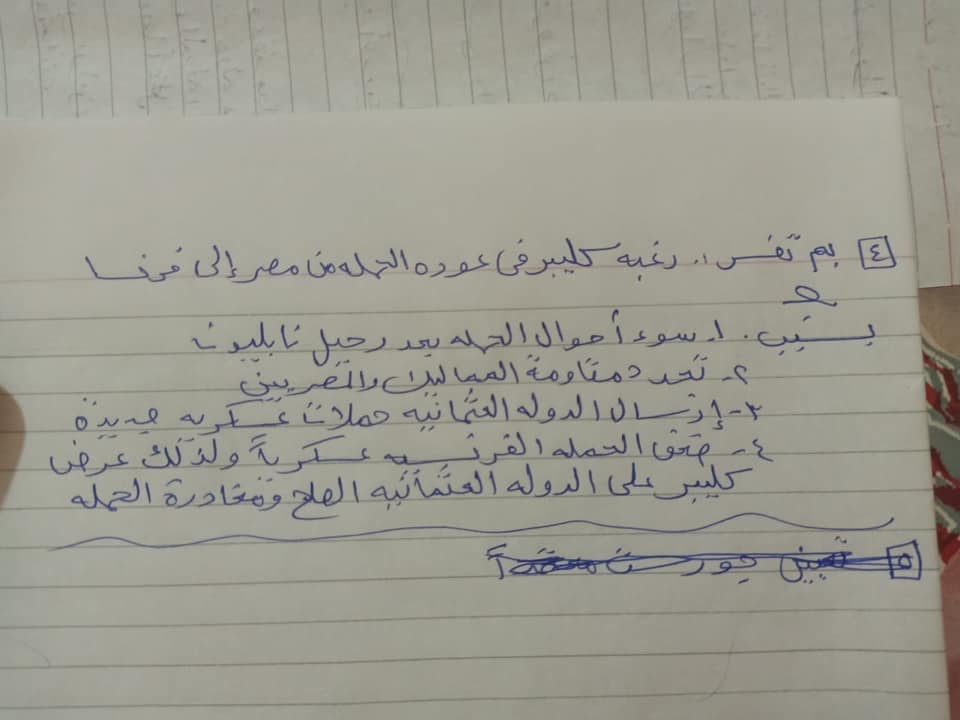 ٤ بم تفسر :. رغبه كليبر فى عوده الحمله من مصر إلى فرنسا
حـ
بسبب. ١. سوء أحوال الحمله بعد رحيل نابليون
٢- تجدد مقاومة المماليك والمصريين
٣- إرسال الدوله العثمانيه حملات عسكريه جديدة
٤- ضعف الحمله الفرنسيه عسكرياً ولذلك عرض
كليبر على الدوله العثمانيه الصلح ومغادرة الحمله
٥